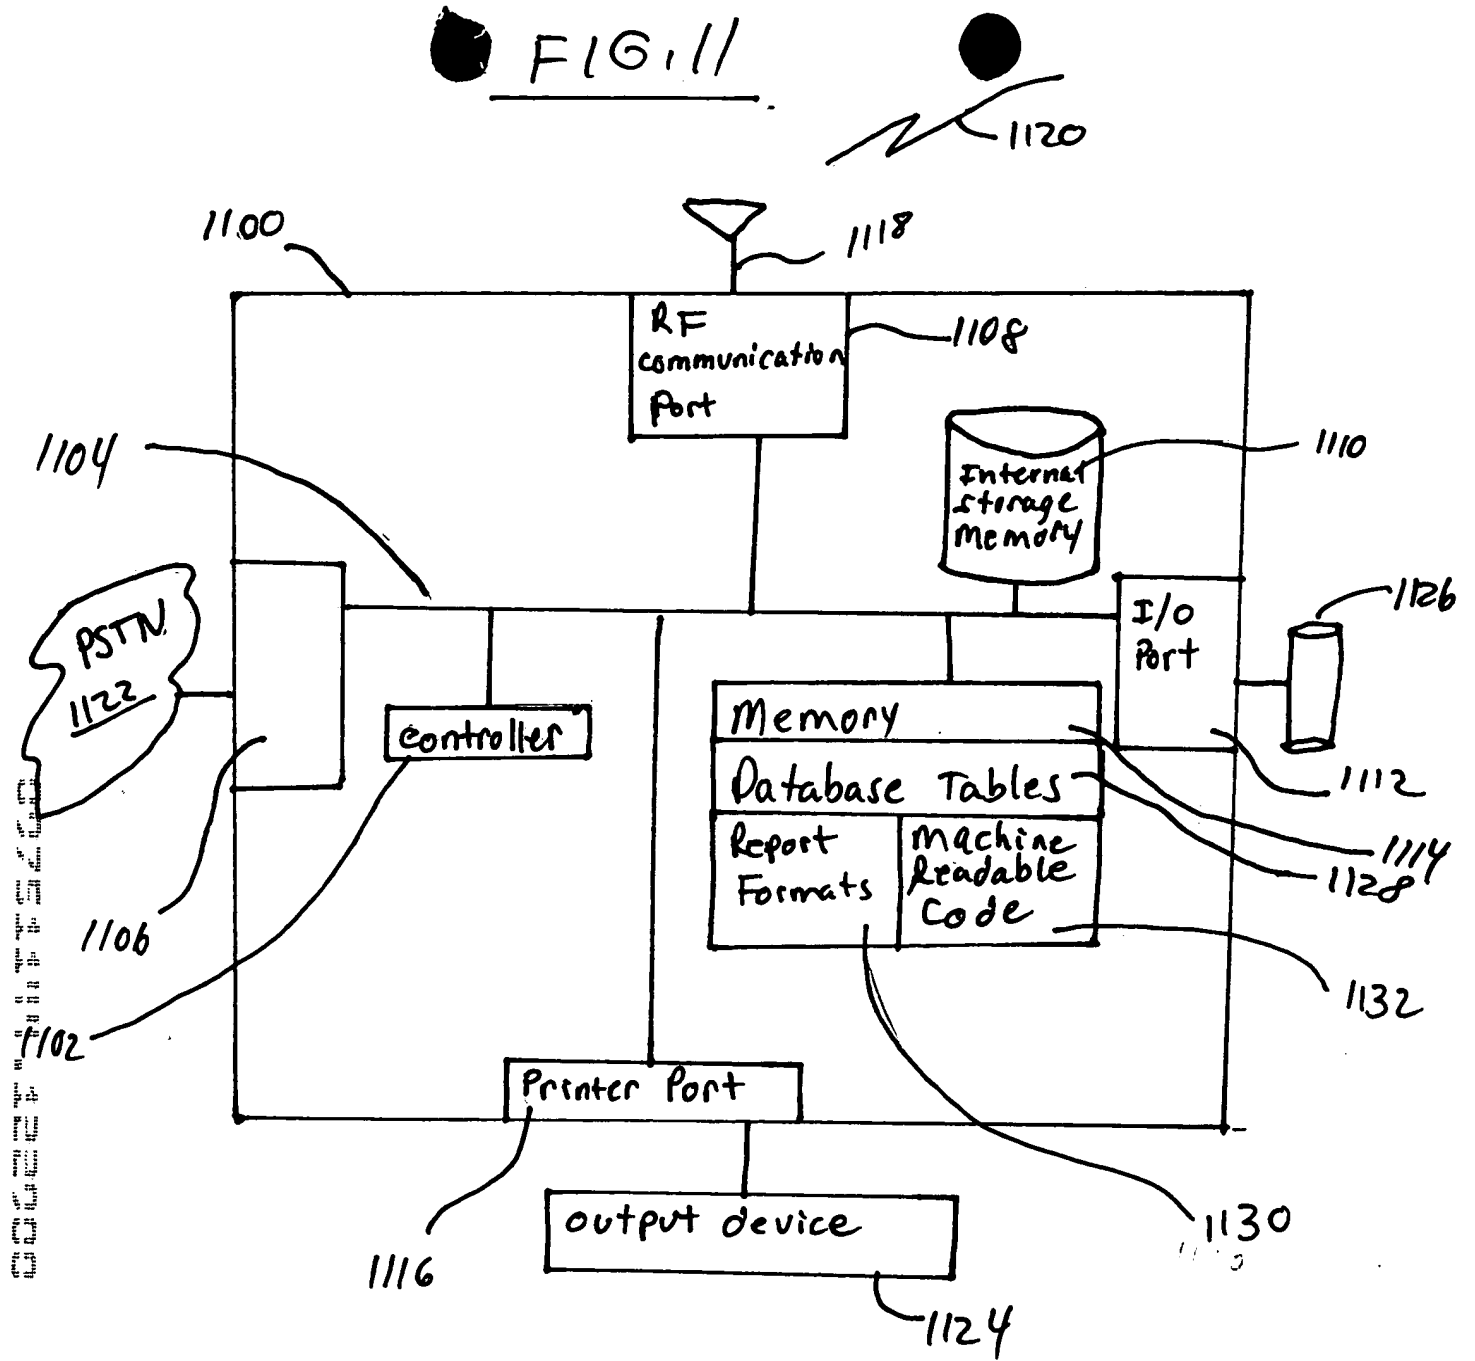 FIG. 11
1120
1100
1118
RF
communication
Port
1108
1104
1110
Internal
storage
Memory
PSTN
1122
I/O
Port
1126
controller
Memory
Database Tables
Report
Formats
Machine
Readable
Code
1112
1114
1128
1106
1132
1102
Printer Port
output device
1130
1116
1124